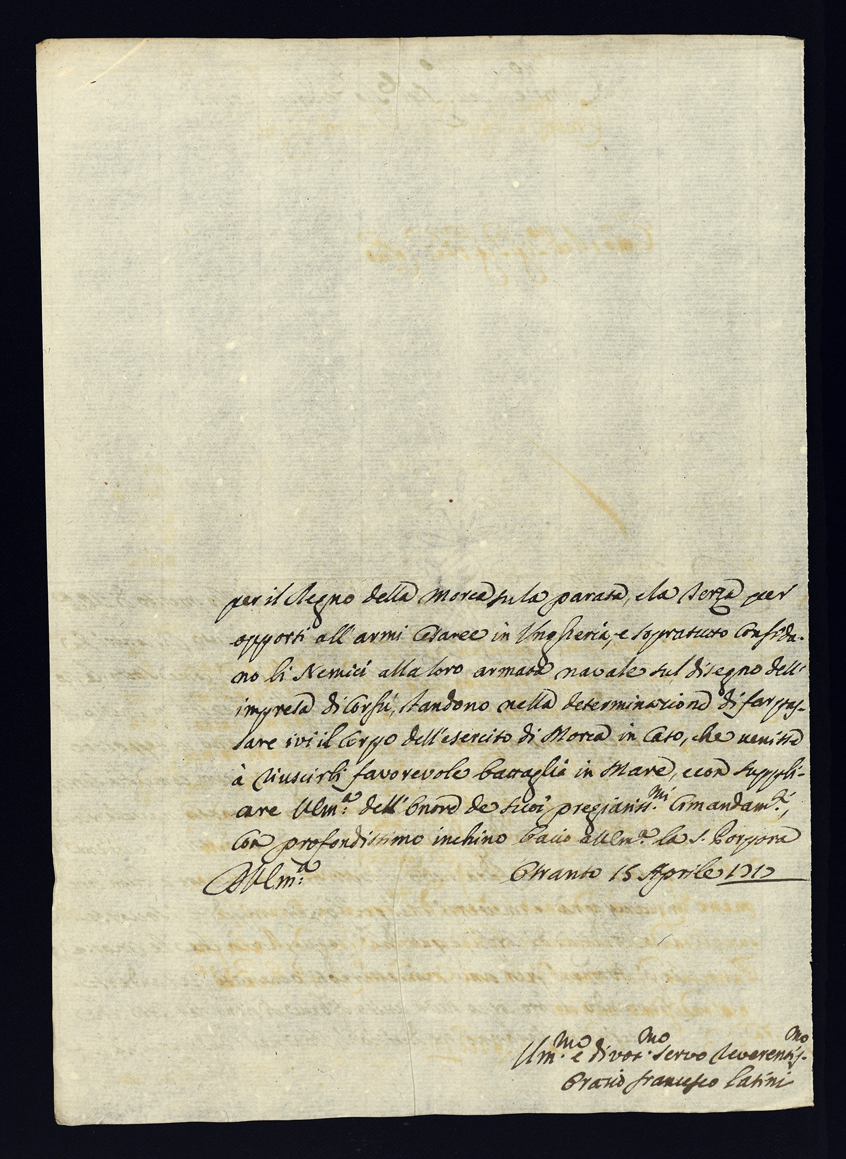 per il Regno della Morea sù la parata, e la Terza per
opporsi all'armi Cesaree in Ungheria, e sopratutto Confida-
no li Nemici alla loro armata navale sul disegno dell'
impresa di Corfù, stando nella determinazione di far pas-
sare ivi il Corpo dell'esercito di Morea in Caso, che venisse
à riuscirli favorevole battaglia in Mare, e con suppli-
care V.S. Ill.ma dell'honore de suoi pregiatiss.mi Comandam.ti,
Con profondissimo inchino bacio a V.S. Ill.ma la S. Porpora
Di V.S. Ill.ma Otranto 15 Aprile 1717
Um.mo e divot.mo Servo Reverentiss.mo
Oratio Francesco Latini